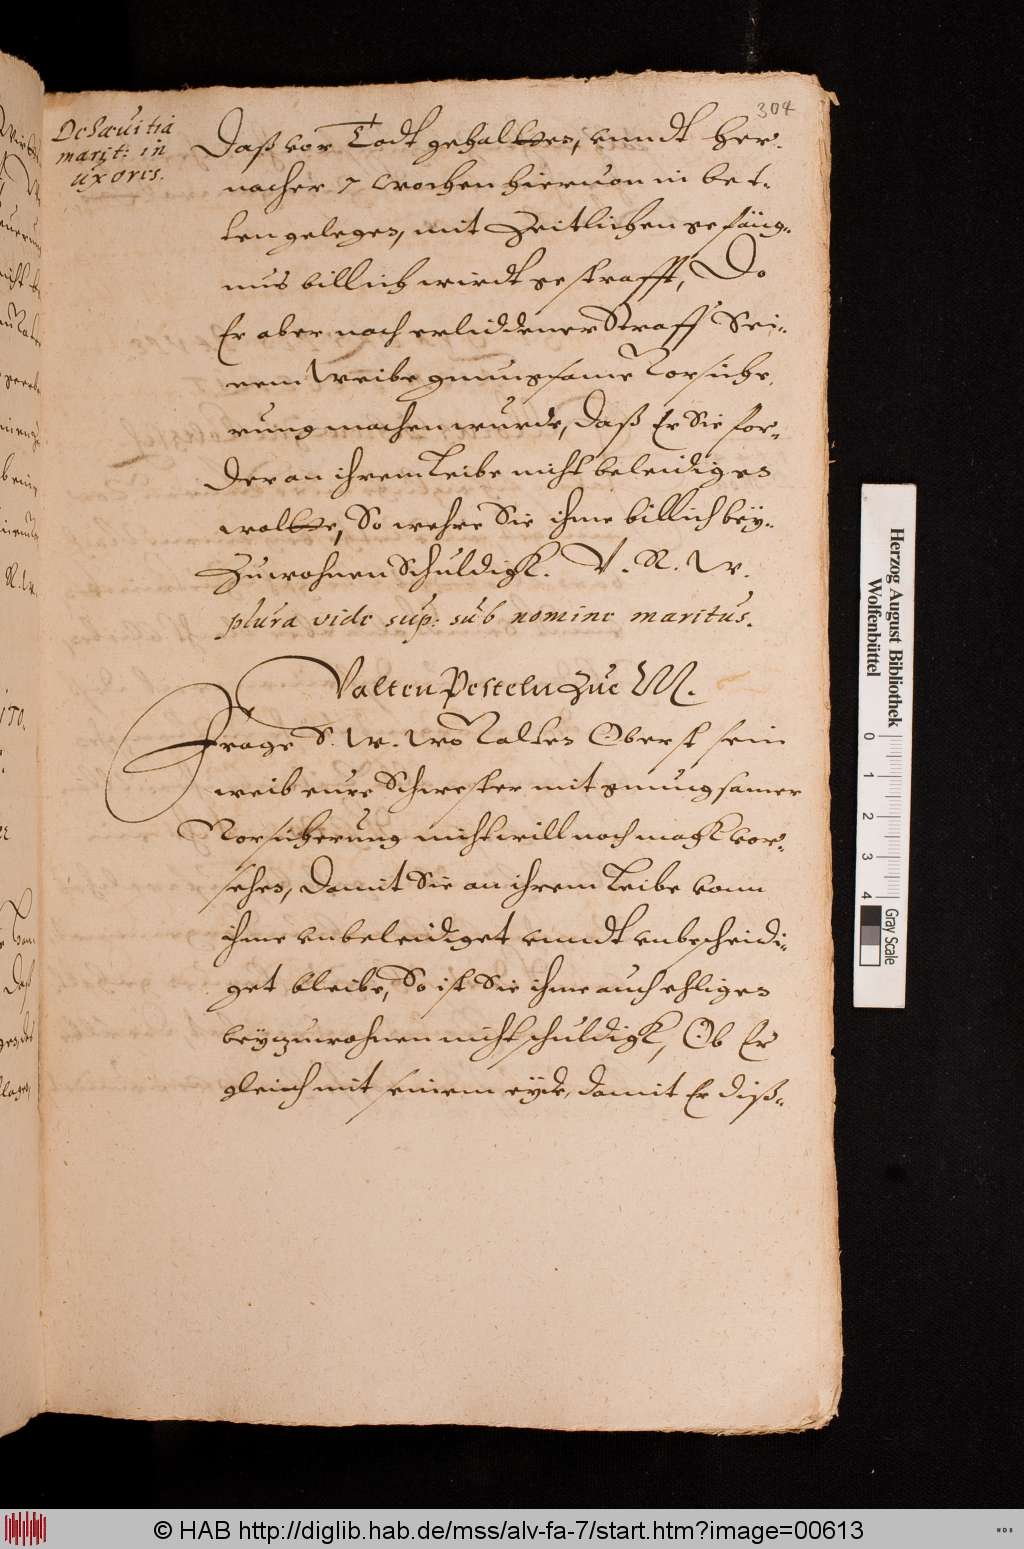 304
De saeuitia
marit: in
uxores.
Daß vor Todt gehaltten, vnndt her-
nacher 7 wochen hiervon in bet-
ten gelegen, mit Zeitlichen gefäng-
nus billich wirdt gestrafft, Do
Er aber nach erliddener Straff Sei-
nem Weibe gnungsame Vorsiche-
rung machen wurde, Daß Er Sie for-
der an ihrem Leibe nicht beleidigen
woltte, So wehre Sie ihme billich bey-
Zuwohnen Schuldigk. V. R. W.
plura vide sup: sub nomine maritus.
Valten Pesteln zue M.
Frage S. W. Wo Valten Oberst sein
weib eure Schwester mit gnungsamer
Vorsicherung nicht will noch magk vor-
sehen, Damit Sie an ihrem Leibe vonn
ihme vnbeleidiget vnndt vnbescheidi-
get bleibe, So ist Sie ihme auch ehligen
beyzuwohnen nicht schuldigk, Ob Er
gleich mit seinem eyde, damit Er diß-
Herzog August Bibliothek
Wolfenbüttel
0 1 2 3 4
Gray Scale
© HAB http://diglib.hab.de/mss/alv-fa-7/start.htm?image=00613